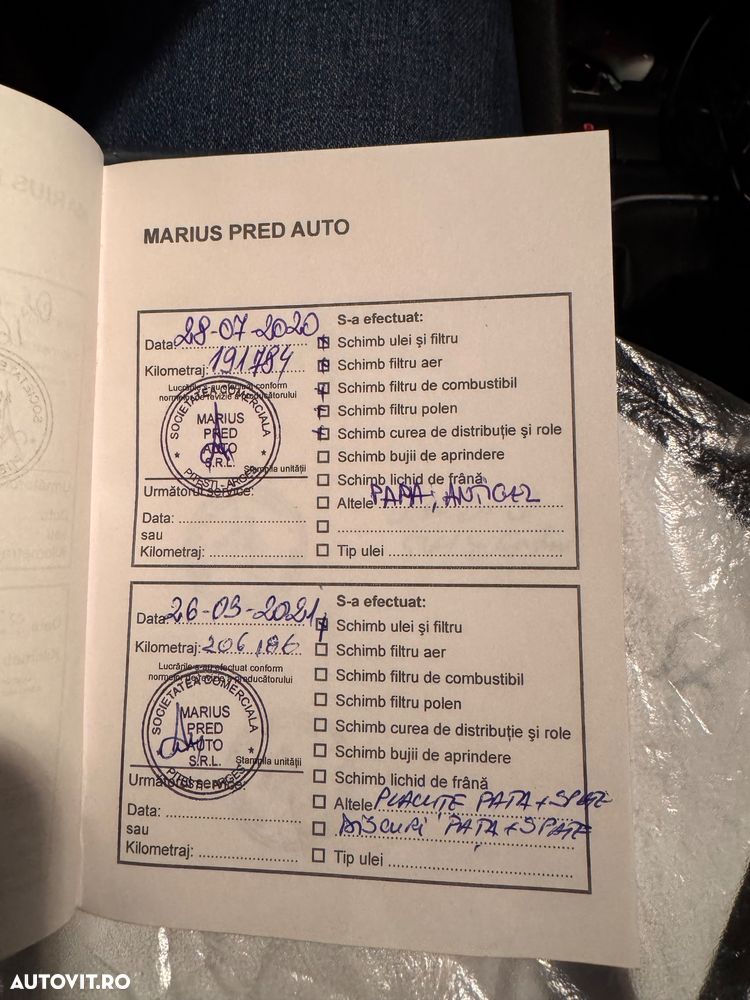 MARIUS PRED AUTO
Data: 28-07-2020
Kilometraj: 191784
Lucrările s-au efectuat conform
normelor de revizie a producătorului
SOCIETATEA COMERCIALA
MARIUS
PRED
AUTO
S.R.L.
PITEȘTI - ARGEȘ
Ștampila unității
Următorul service:
Data:
sau
Kilometraj:
S-a efectuat:
Schimb ulei şi filtru
Schimb filtru aer
Schimb filtru de combustibil
Schimb filtru polen
Schimb curea de distribuţie şi role
Schimb bujii de aprindere
Schimb lichid de frână
Altele PAPA, ANTIGEL
Tip ulei
Data: 26-03-2021
Kilometraj: 206 186
Lucrările s-au efectuat conform
normelor de revizie a producătorului
SOCIETATEA COMERCIALA
MARIUS
PRED
AUTO
S.R.L.
PITEȘTI - ARGEȘ
Ștampila unității
Următorul service:
Data:
sau
Kilometraj:
S-a efectuat:
Schimb ulei şi filtru
Schimb filtru aer
Schimb filtru de combustibil
Schimb filtru polen
Schimb curea de distribuţie şi role
Schimb bujii de aprindere
Schimb lichid de frână
Altele PLACUȚE FAȚA + SPATE
DISCURI FAȚA + SPATE
Tip ulei
AUTOVIT.RO